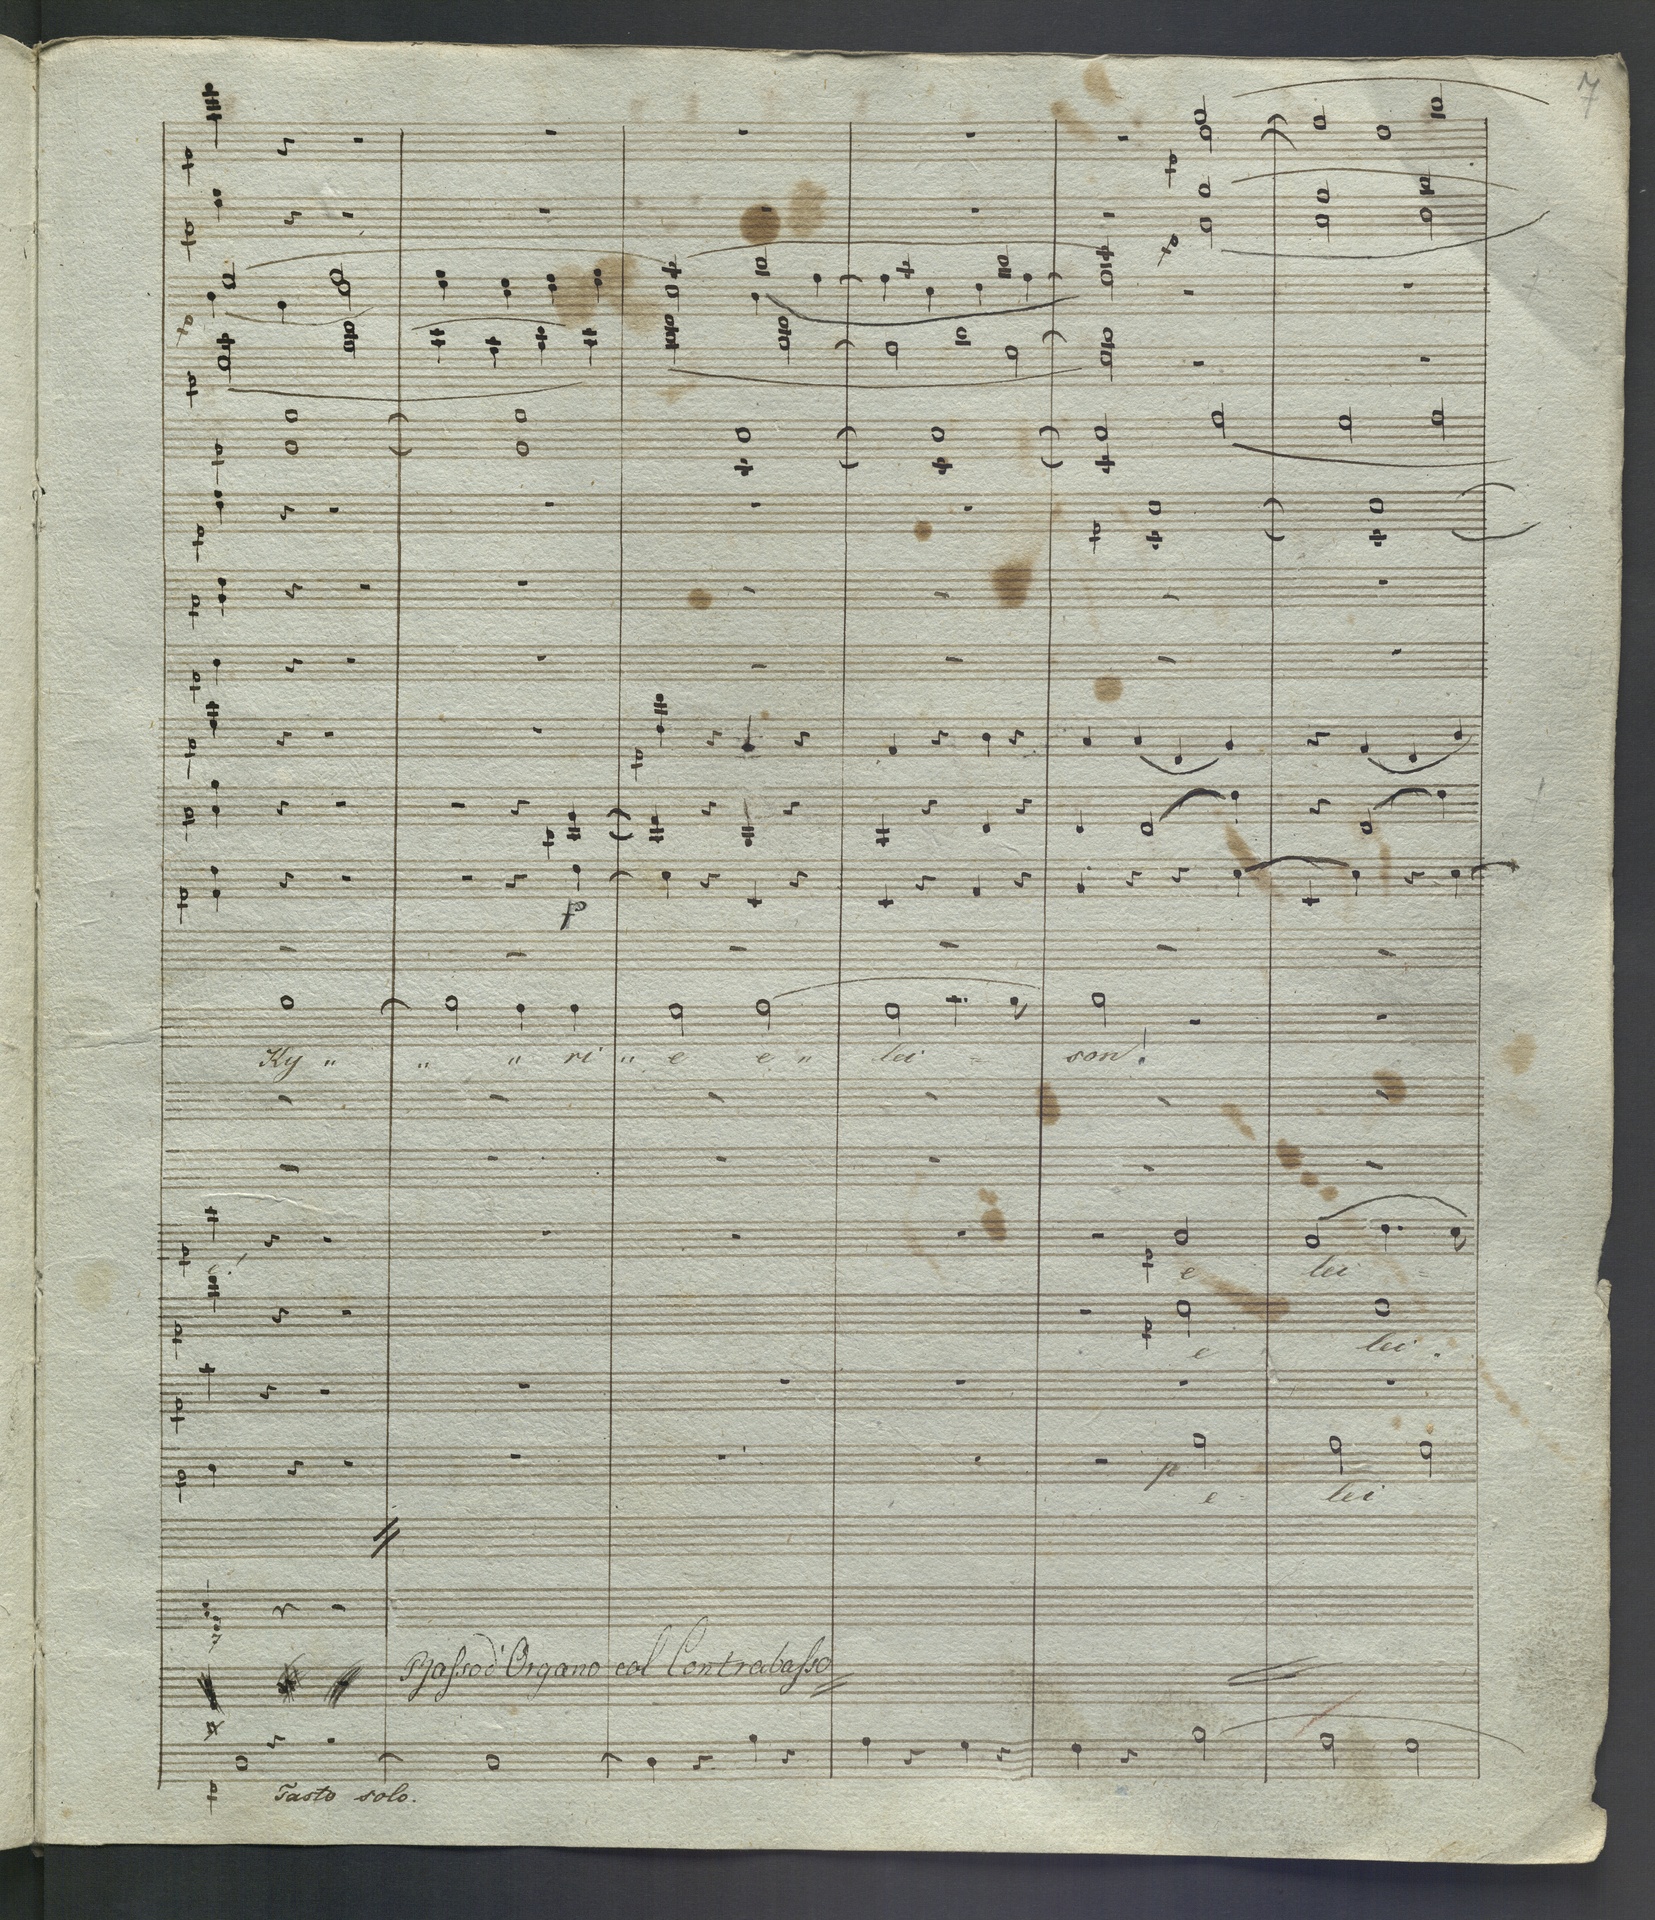 7
p
Ky " " " ri " e e " lei = son!
e!
e lei =
e lei .
p e lei
Basso d'Organo col Contrabasso
Tasto solo.